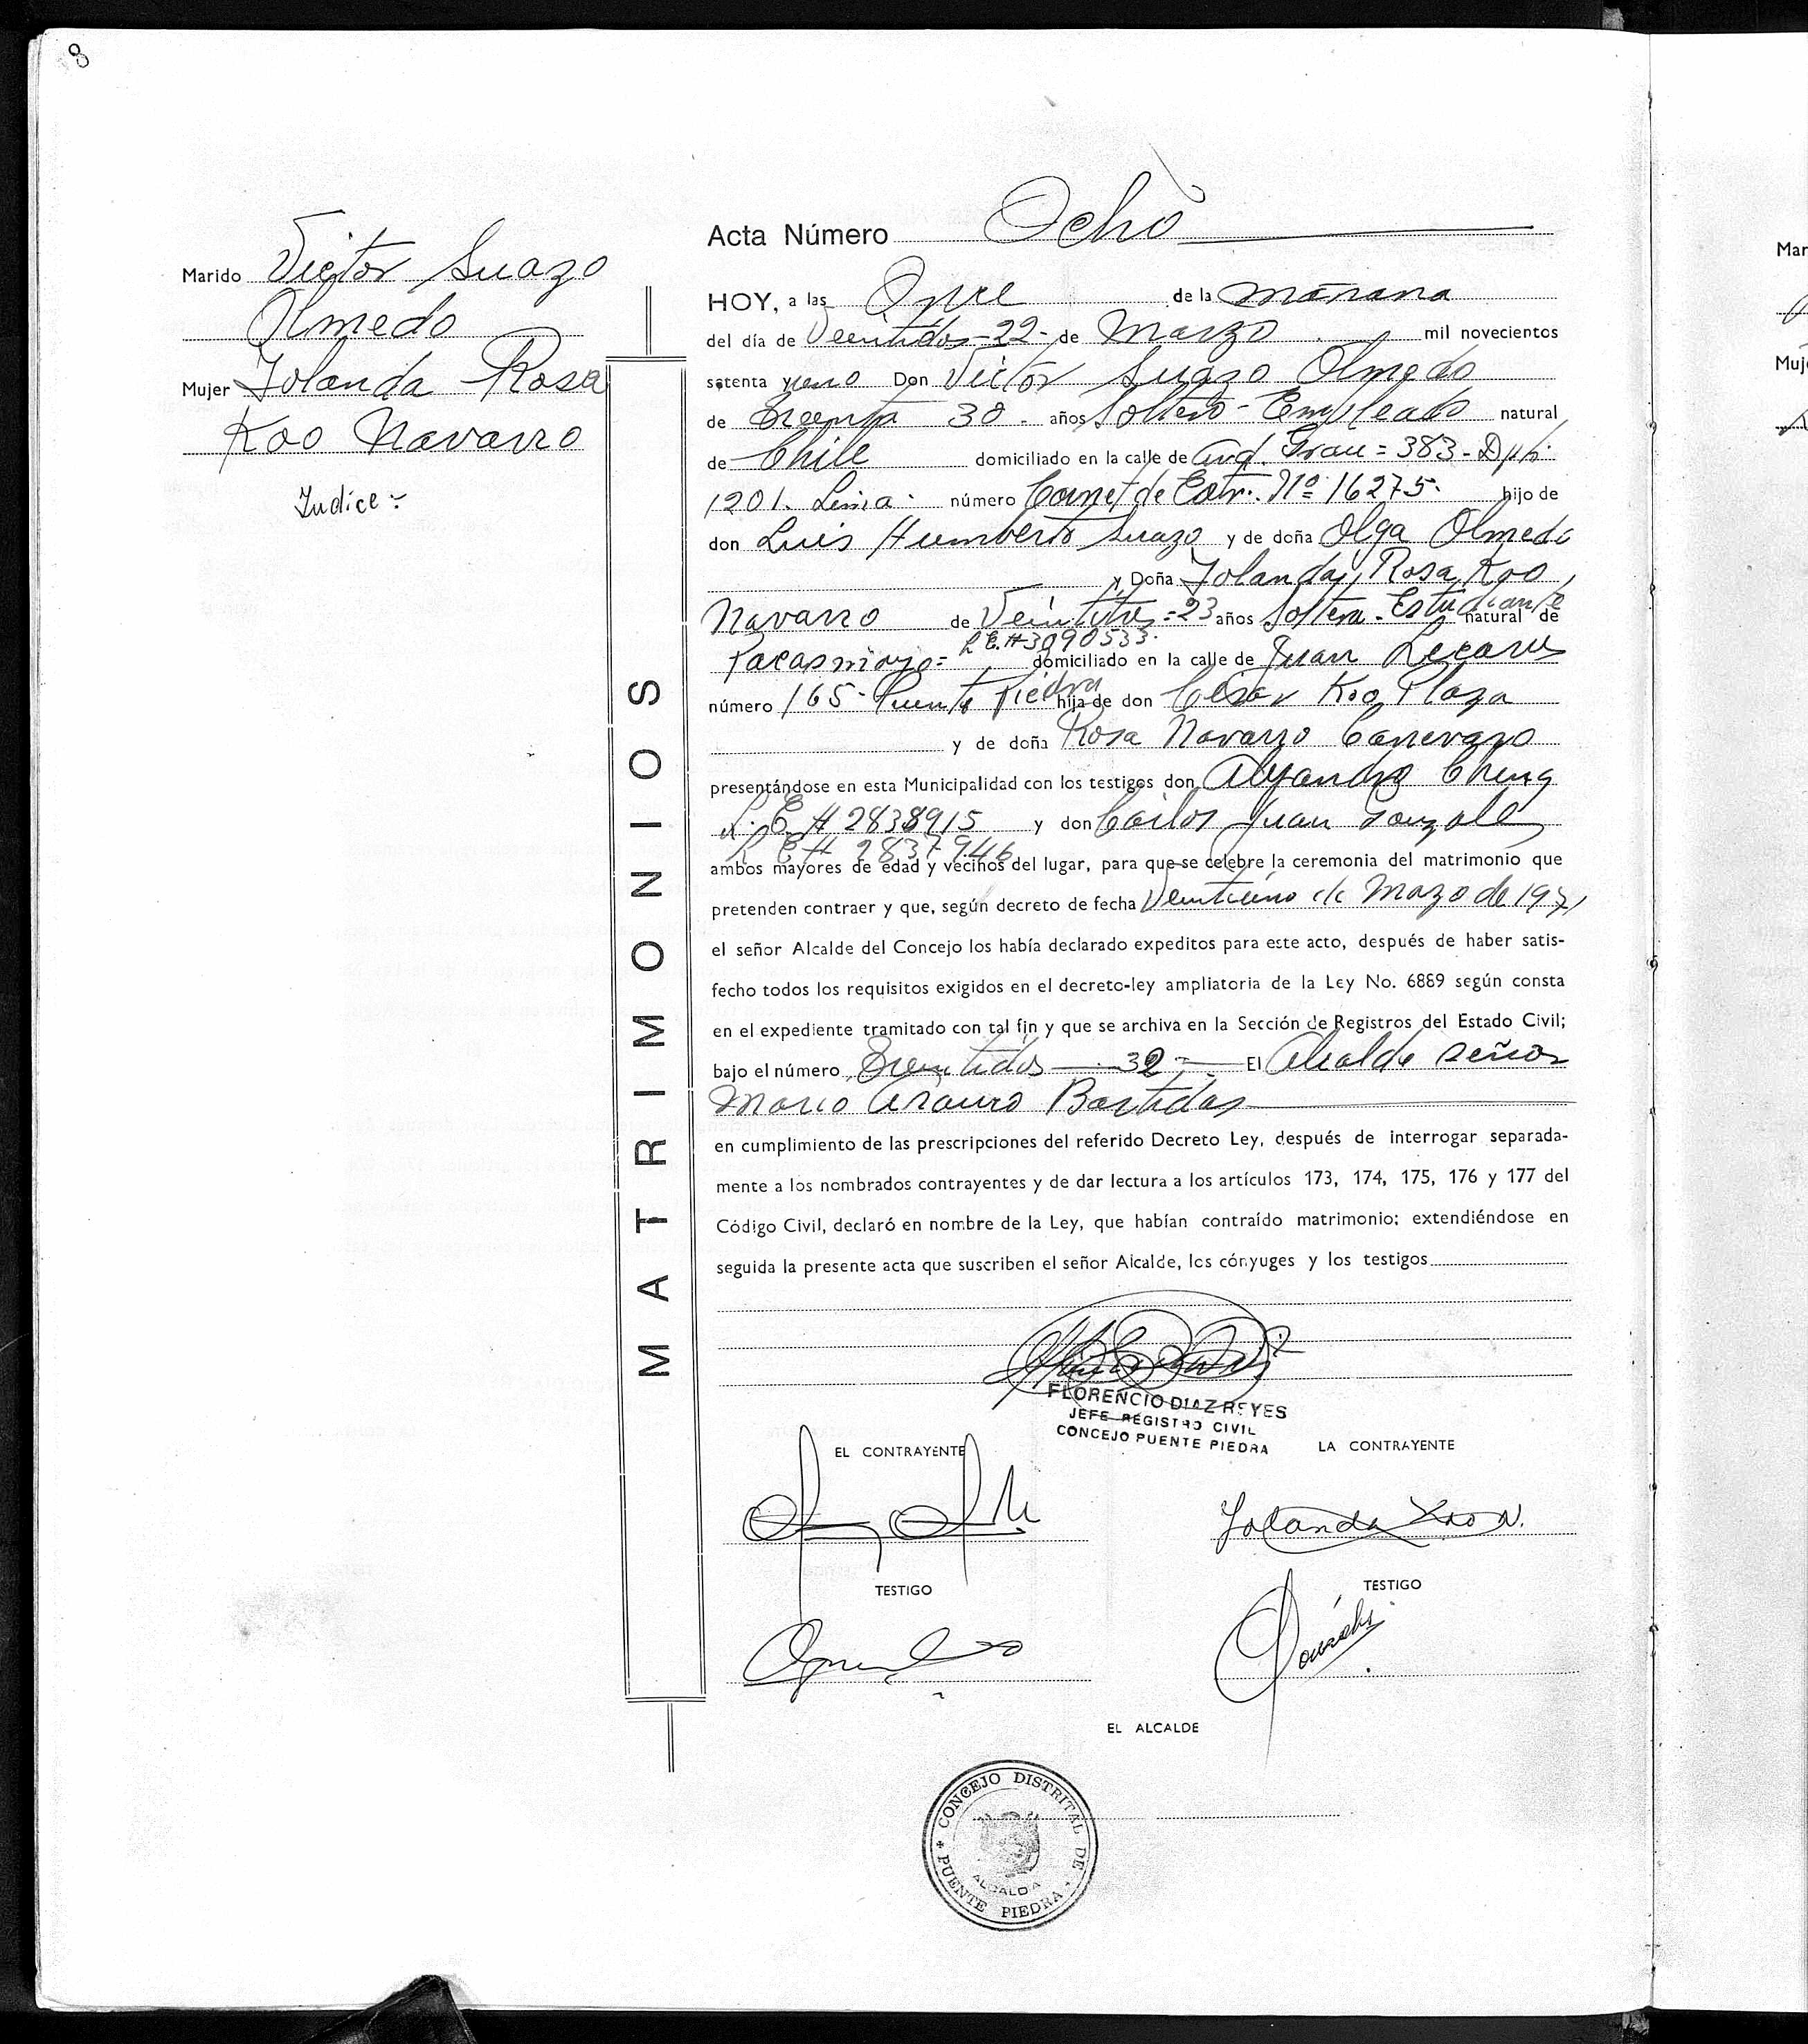 8
Marido Victor Suazo
Olmedo
Mujer Yolanda Rosa
Koo Navarro
Indice :-
MATRIMONIOS
Acta Número Ocho
HOY, a las Once de la mañana
del día de Veintidos - 22 - de Marzo mil novecientos
setenta y uno Don Victor Suazo Olmedo
de Treenta 30 - años Soltero - Empleado natural
de Chile domiciliado en la calle de Avd. Grau = 383 - Dpto.
1201. Lima - número Carnet de Extr. Nº 16275. hijo de
don Luis Humberto Suazo y de doña Olga Olmedo
y Doña Yolanda, Rosa Koo,
Navarro de Veintitres = 23 años Soltera - Estudiante natural de
Pacasmayo = L E. # 3090533. domiciliado en la calle de Juan Lecaros
número 165 - Puente Piedra hija de don César Koo Plaza
y de doña Rosa Navarro
presentándose en esta Municipalidad con los testigos don Alejandro Cheng
L. E # 2838915 y don Carlos Juan Gonzales
L E # 2837946
ambos mayores de edad y vecinos del lugar, para que se celebre la ceremonia del matrimonio que
pretenden contraer y que, según decreto de fecha Veintiuno de Mazo de 1971
el señor Alcalde del Concejo los había declarado expeditos para este acto, después de haber satis-
fecho todos los requisitos exigidos en el decreto-ley ampliatoria de la Ley No. 6889 según consta
en el expediente tramitado con tal fin y que se archiva en la Sección de Registros del Estado Civil;
bajo el número Treentidos - 32 - El Alcalde señor
Mario Arauro Bastidas
en cumplimiento de las prescripciones del referido Decreto Ley, después de interrogar separada-
mente a los nombrados contrayentes y de dar lectura a los artículos 173, 174, 175, 176 y 177 del
Código Civil, declaró en nombre de la Ley, que habían contraído matrimonio; extendiéndose en
seguida la presente acta que suscriben el señor Alcalde, los cónyuges y los testigos
FLORENCIO DIAZ REYES
JEFE REGISTRO CIVIL
CONCEJO PUENTE PIEDRA
EL CONTRAYENTE LA CONTRAYENTE
Yolanda Koo N.
TESTIGO TESTIGO
EL ALCALDE
CONCEJO DISTRITAL DE
PUENTE PIEDRA
ALCALDIA
Mar
Muj